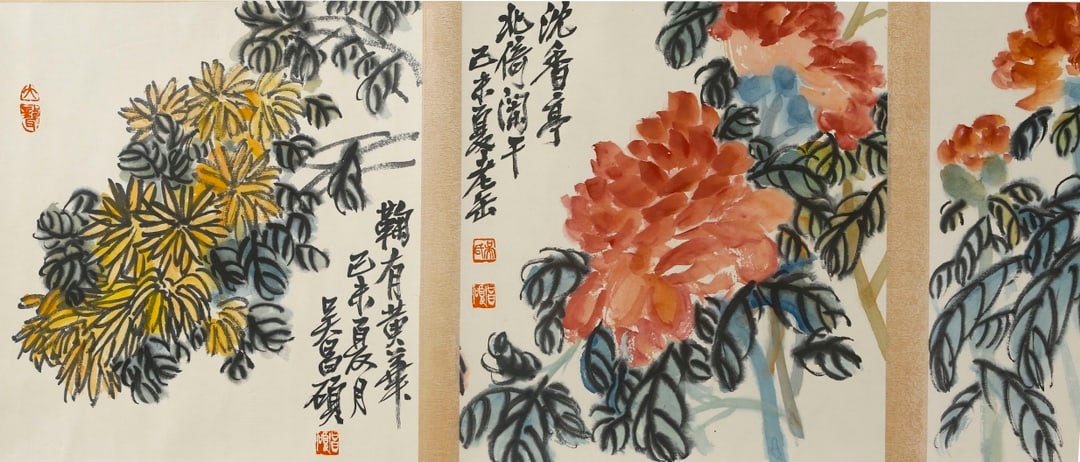 沈香亭
北倚闌干
己未夏老缶
鞠有黃華
己未夏月
吴昌碩
大聾